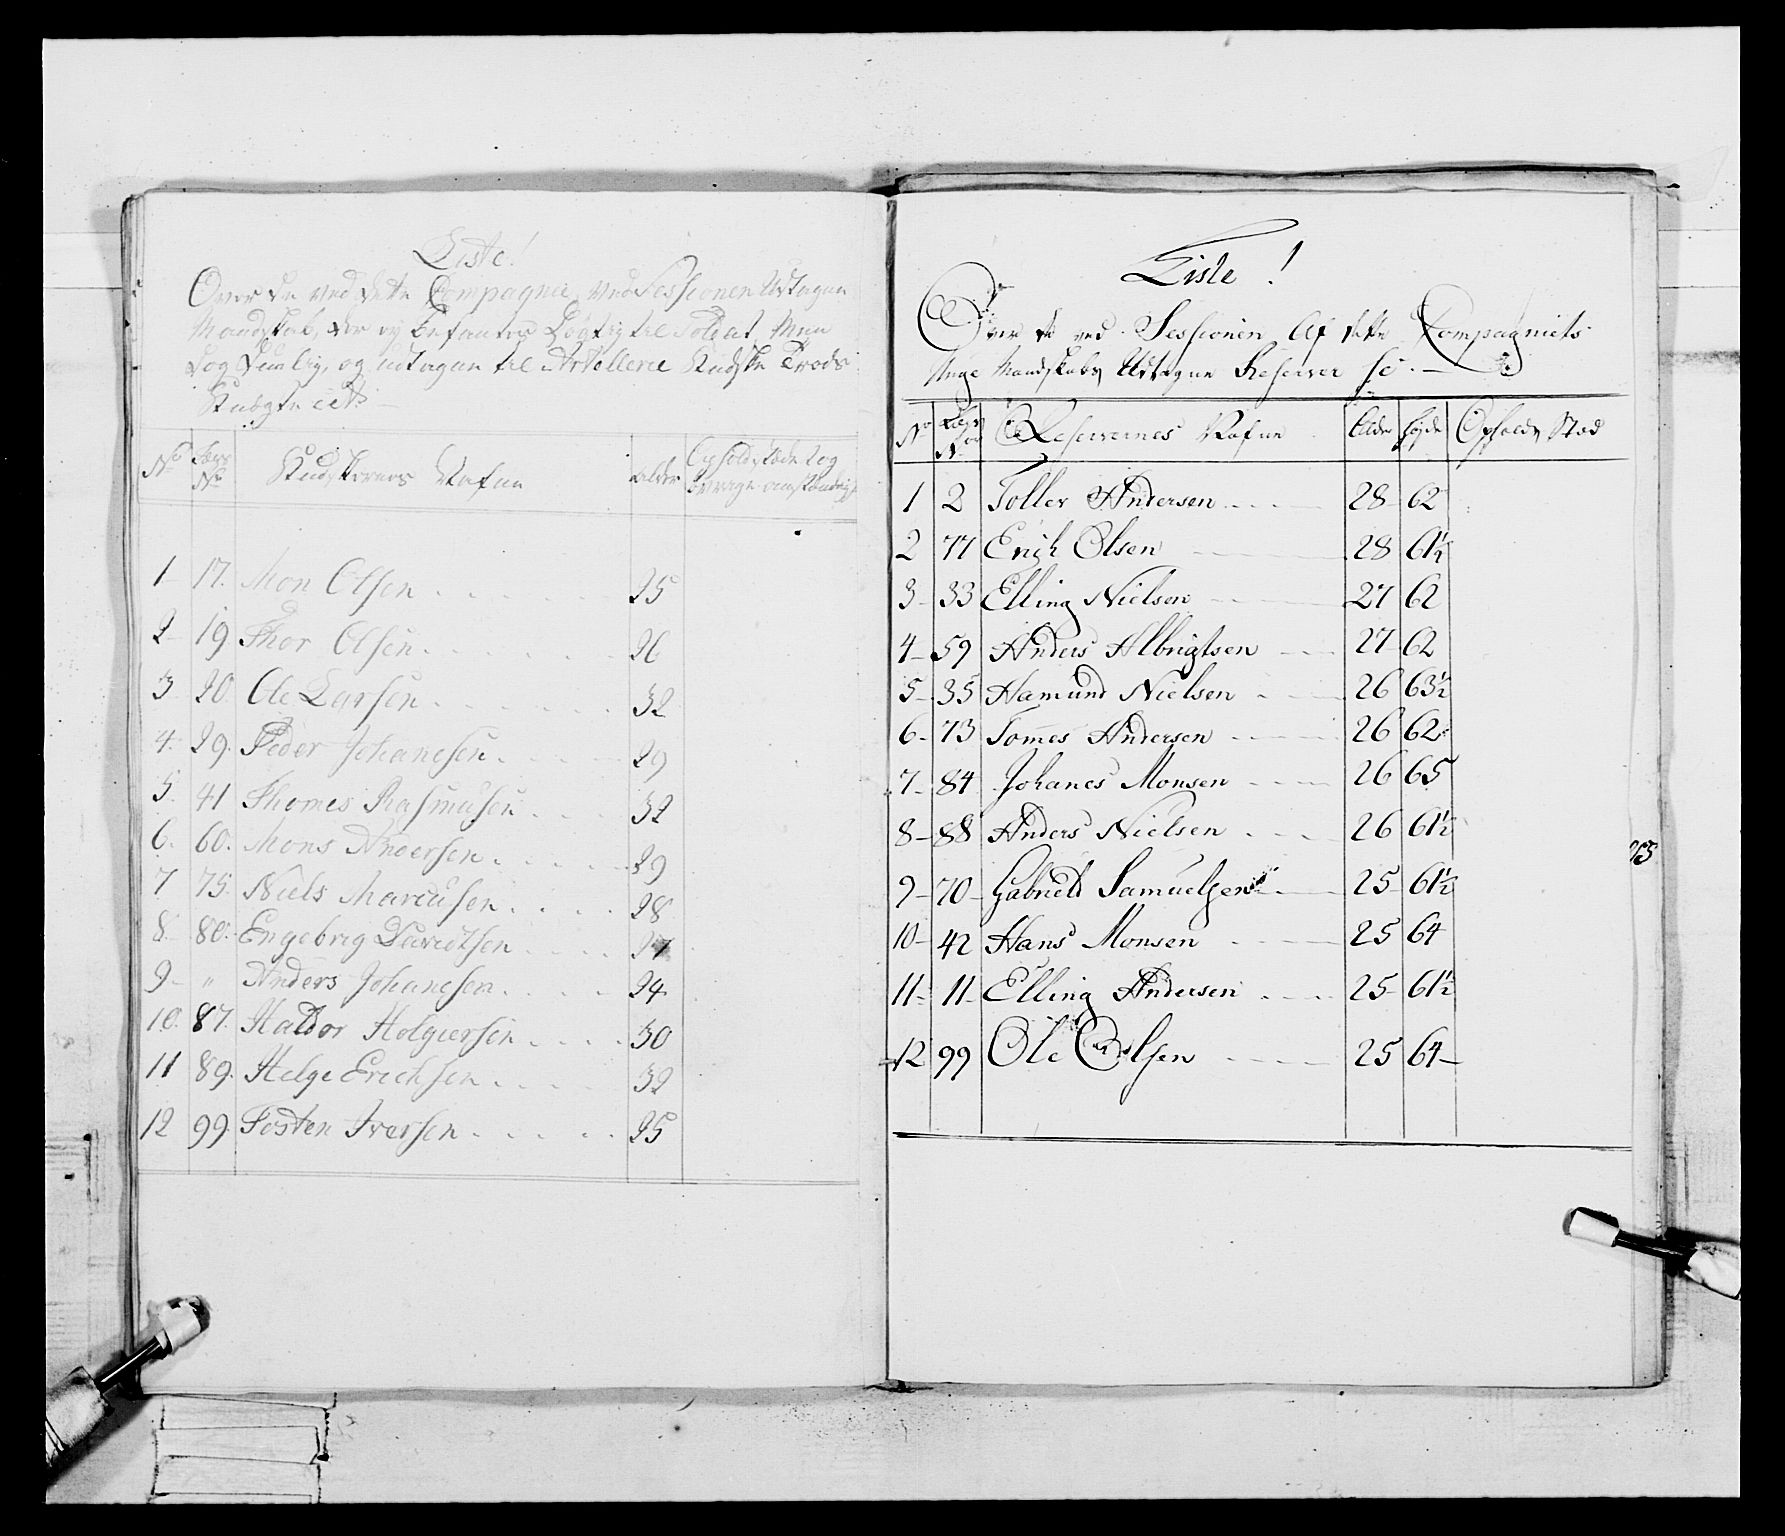 Liste!
Over de ved dette Compagnie, ved Sessionen Udtagne
Mandskab, der ey befantes Dögtig til Soldat, Men
dog tienlig, og udtagen til Artollerie Kudske Trods
No Lægs No Kudskernes Nafne alder Opholdstæde og övrige omstændig
1 17. Mon Olsen 25
2 19 Thor Olsen 26
3 20 Ole Larsen 32
4. 29. Peder Johanesen 29
5. 41 Thomes Rasmusen 32
6. 60. Mons Andersen 29
7 75. Niels Marcusen 28
8. 80. Engebrig Davidtsen 27
9 " Anders Johanesen 24
10. 87. Haldor Holgiersen 30
11 89. Helge Erichsen 32
12 99. Tosten Iversen 25
Liste!
Over de ved Sessionen Af dette Compagniets
Unge Mandskabs Udtagne Reserver
No Lægs No Reservernes Nafne Alder Höyde Opholds Stæd
1 2 Toller Andersen 28 62
2 77 Erich Olsen 28 61½
3 33 Elling Nielsen 27 62
4 59 Anders Albrigtsen 27 62
5 35 Hamund Nielsen 26 63½
6 73 Tomes Andersen 26 62
7 84 Johanes Monsen 26 65
8 88 Anders Nielsen 26 61½
9 70 Gabriels Samuelsen 25 61½
10 42 Hans Monsen 25 64
11 11 Elling Andersen 25 61½
12 99 Ole Olsen 25 64